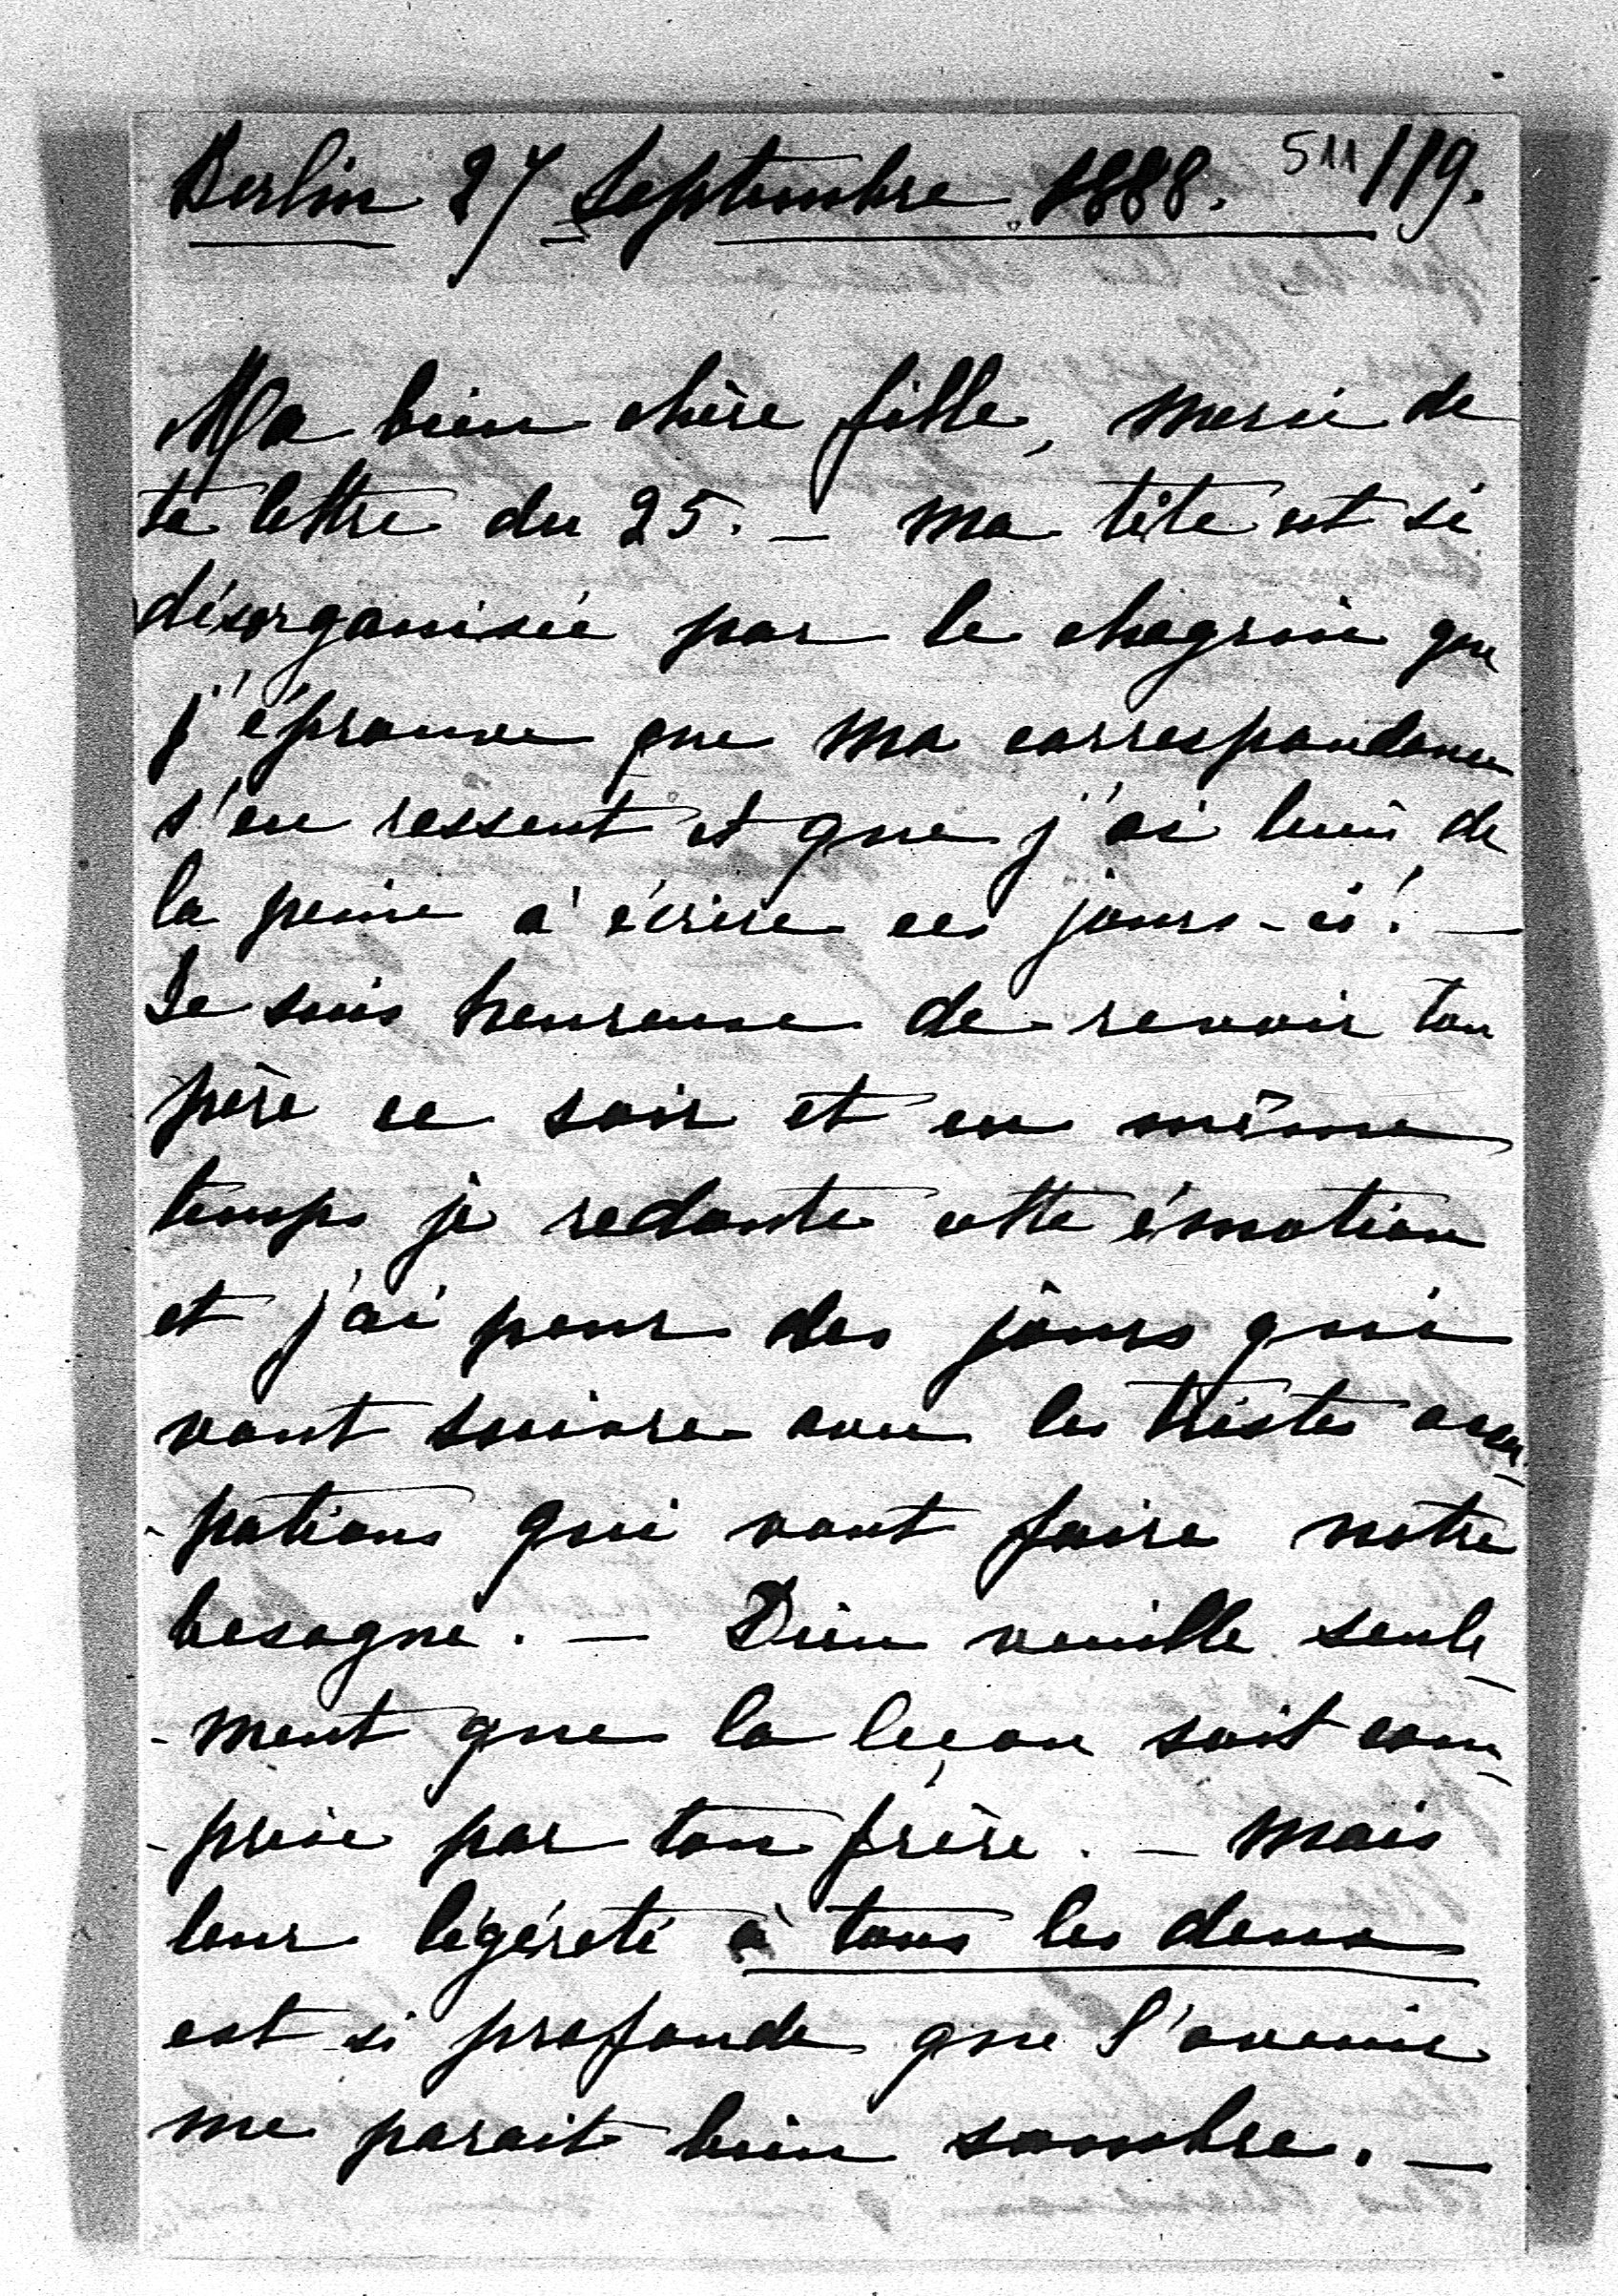 Berlin 27 Septembre 1888. 511/19.
Ma bien chère fille, merci de
ta lettre du 25. – ma tête est si
désorganisée par le chagrin que
j'éprouve que ma correspondance
s'en ressent et que j'ai bien de
la peine à écrire ces jours-ci! –
Je suis heureuse de revoir ton
père ce soir et en même
temps je redoute cette émotion
et j'ai peur des jours qui
vont suivre avec les tristes occu-
-pations qui vont faire notre
besogne. – Dieu veuille seule-
-ment que la leçon soit com-
-prise par ton frère. – mais
leur légéreté à tous les deux
est si profonde que l'avenir
me parait bien sombre. –